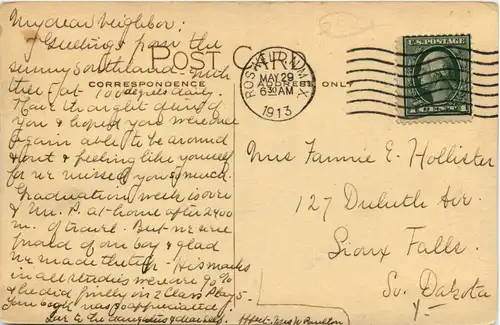 My dear Neighbor:
Greetings from the
sunny Southland - with
the S. at 100 degrees daily.
Have thought often of
you & hoped you were once
again able to be around
& out & feeling like yourself
for we missed you so much.
Graduation week is over
& Mr. P. at home after 2400
m. of travel. But we were
proud of our boy & glad
we made the trip. His marks
in all studies were 90%
& he did finely in 2 Class Plays -
Your book was so appreciated.
Love to the daughters &
POST CARD
CORRESPONDENCE
ADDRESS ONLY
ROSWELL, N. MEX.
MAY 29
6 30 AM
1913
U.S. POSTAGE
Mrs Fannie E. Hollister
127 Duluth Ave.
Sioux Falls.
So. Dakota